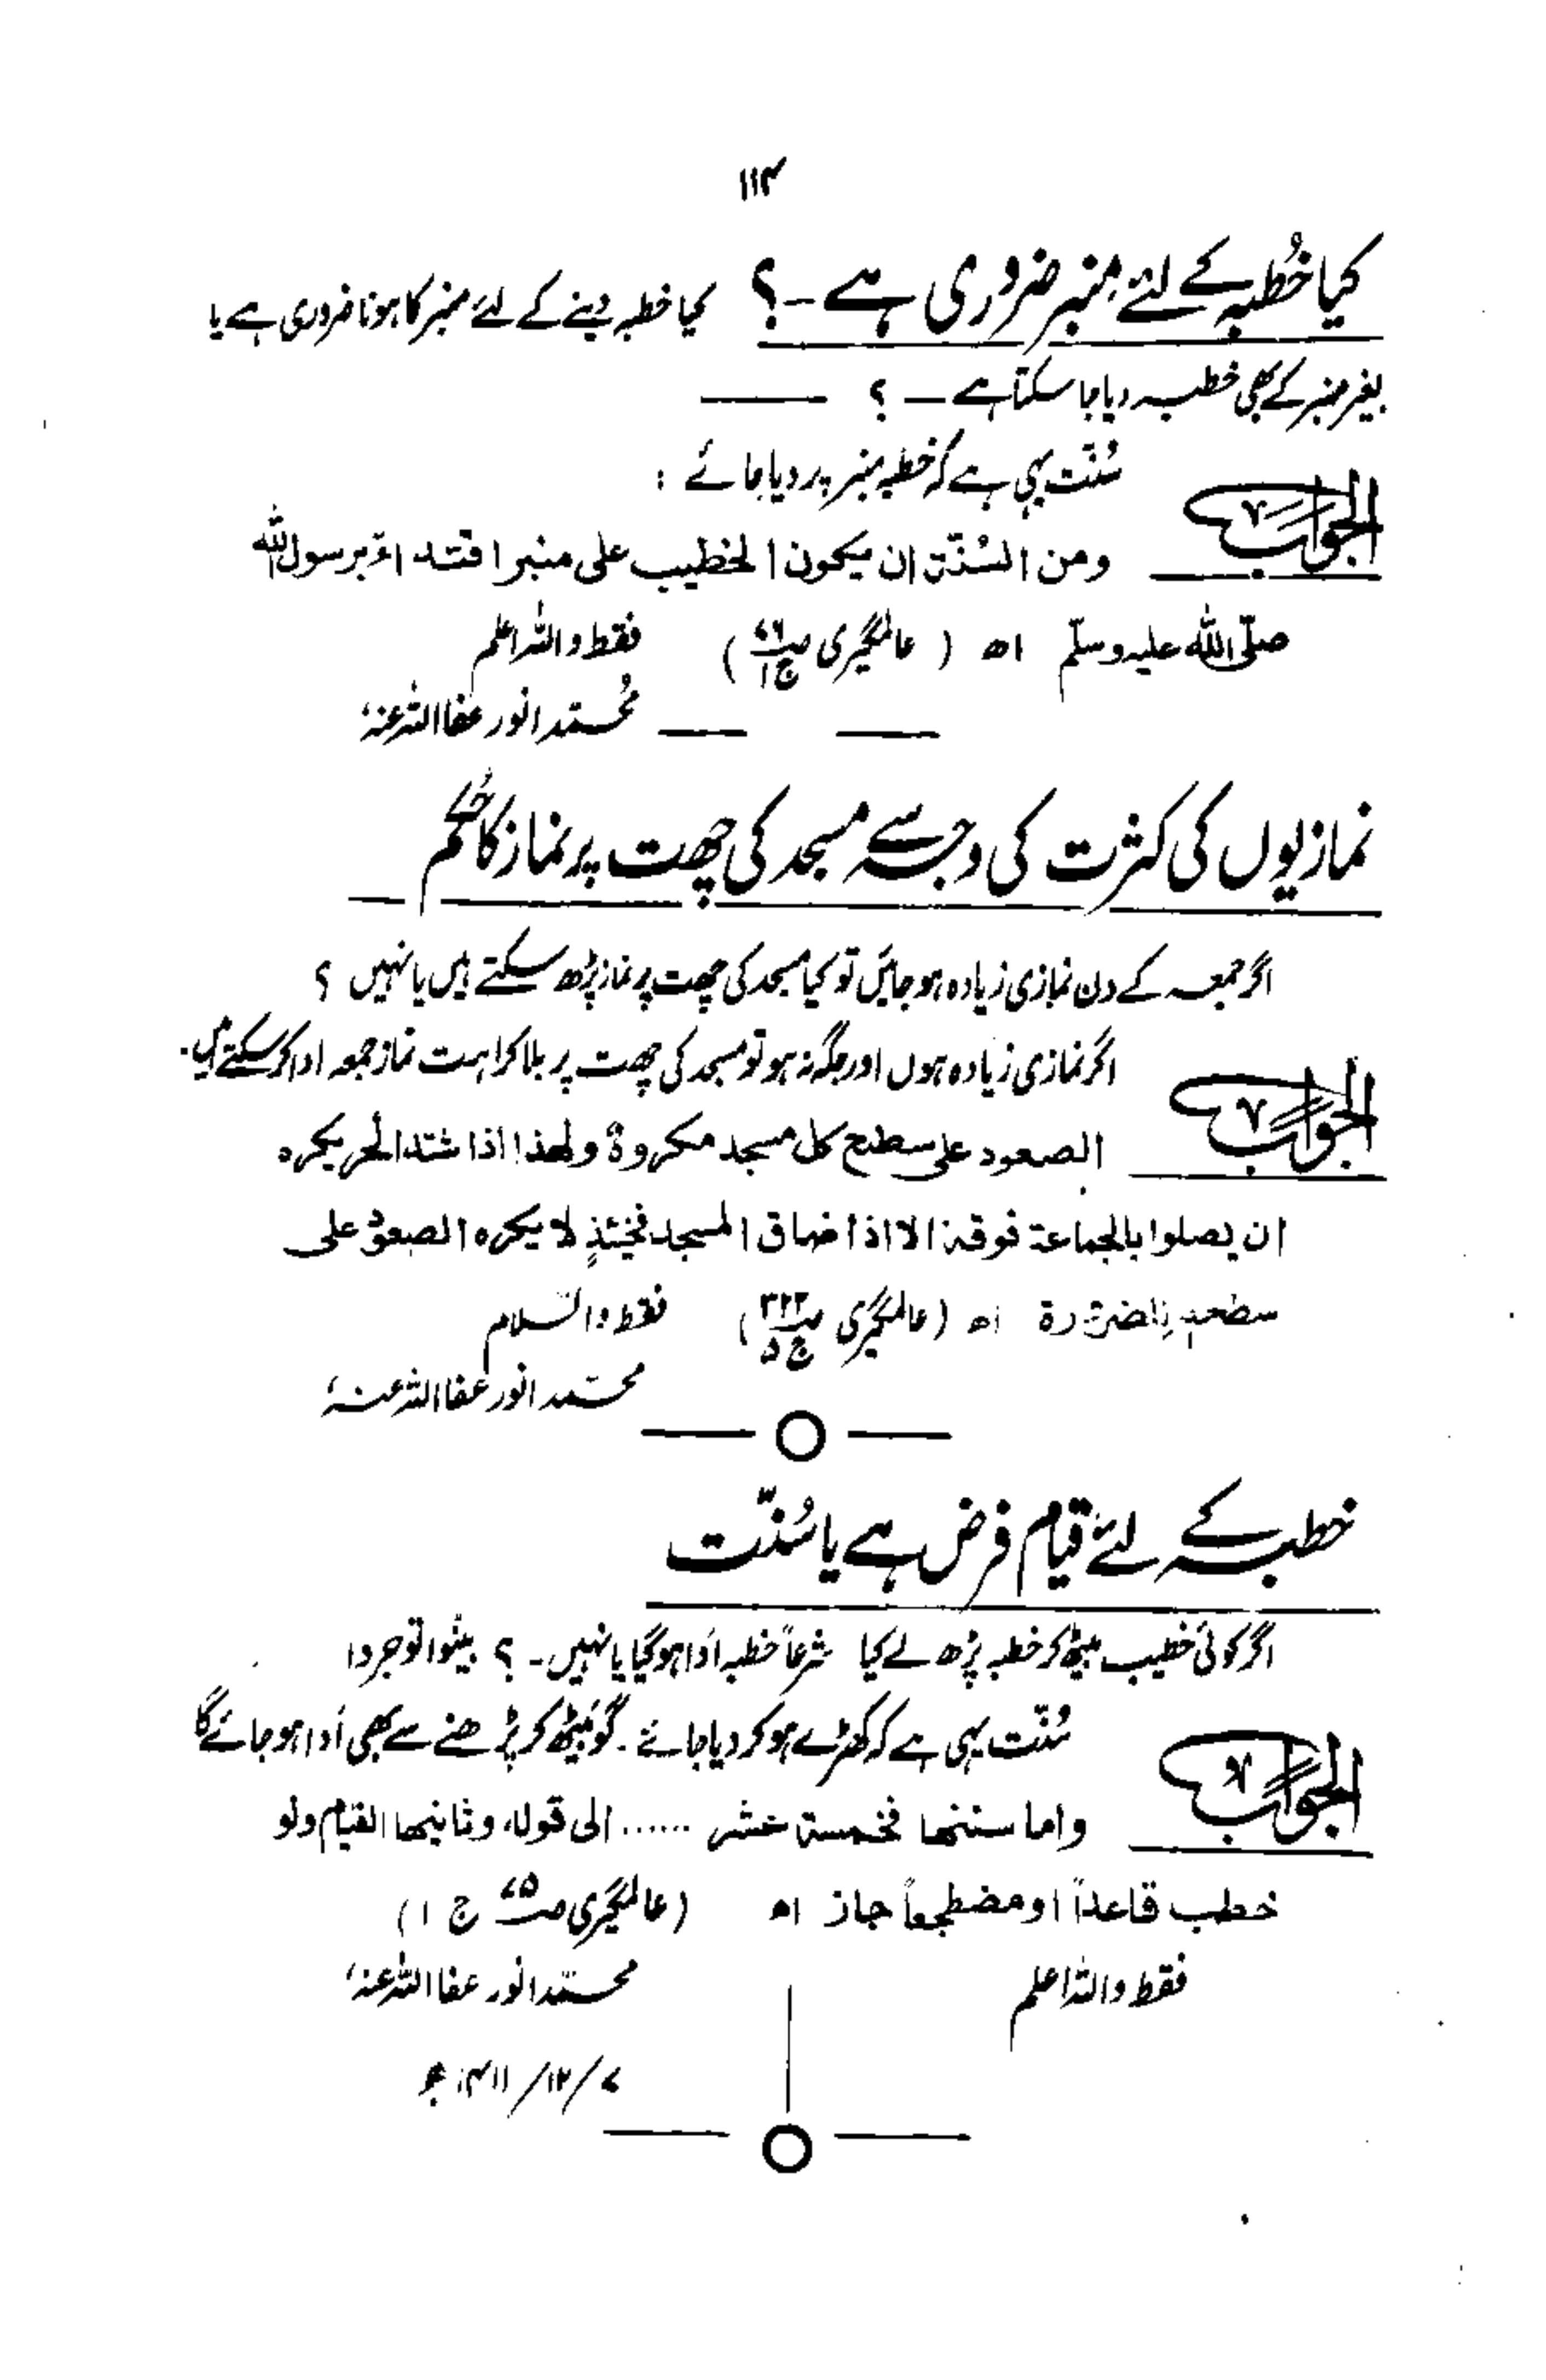 ۱۱۴
کیا خُطبہ کے لئے منبر ضروری ہے ـ؟ کیا خطبہ دینے کے لئے ممبر کا ہونا ضروری ہے یا
بغیر منبر کے بھی خطبہ دیا جا سکتا ہے ــ ؟
سُنّت یہی ہے کہ خطبہ منبر پر دیا جائے :
الجواب
ومن السُنّۃ ان یکون الخطیب علی منبر اقتداءً برسول اللّٰہ
صلّی اللّٰہ علیہ وسلّم اھ ( عالمگیری ص۷۶ ج۱ ) فقط واللہ اعلم
محمّد انور عفا اللہ عنہ،
نمازیوں کی کثرت کی وجہ سے مسجد کی چھت پر نماز کا حُکم
اگر جمعہ کے دن نمازی زیادہ ہو جائیں تو کیا مسجد کی چھت پر نماز پڑھ سکتے ہیں یا نہیں ؟
اگر نمازی زیادہ ہوں اور جگہ نہ ہو تو مسجد کی چھت پر بلا کراہت نماز جمعہ ادا کر سکتے ہیں.
الجواب
الصعود علی سطح کل مسجد مکروہ ولھذا اذا شتد الحر یکرہ
ان یصلوا بالجماعۃ فوقہ الا اذا ضاق المسجد فحینئذٍ لا یکرہ الصعود علی
سطحہٖ للضرورۃ اھ (عالمگیری ص۳۲۲ ج۵) فقط والسلام
محمّد انور عفا اللہ عنہ،
خطبہ کے لئے قیام فرض ہے یا سُنّت
اگر کوئی خطیب بیٹھ کر خطبہ پڑھ لے کیا شرعاً خطبہ ادا ہو گیا یا نہیں ـ ؟ بیّنوا توجروا
سُنّت یہی ہے کہ کھڑے ہو کر دیا جائے ۔ گو بیٹھ کر پڑھنے سے بھی اَدا ہو جائے گا
الجواب
واما سننھا فخمسۃ عشر ...... الی قولہ، وثانیھا القیام ولو
خطب قاعداً او مضطجعاً جاز اھ (عالمگیری ص۷۵ ج ۱)
فقط واللہ اعلم محمّد انور عفا اللہ عنہ،
۷/۱۲/۱۴۱۱ھ